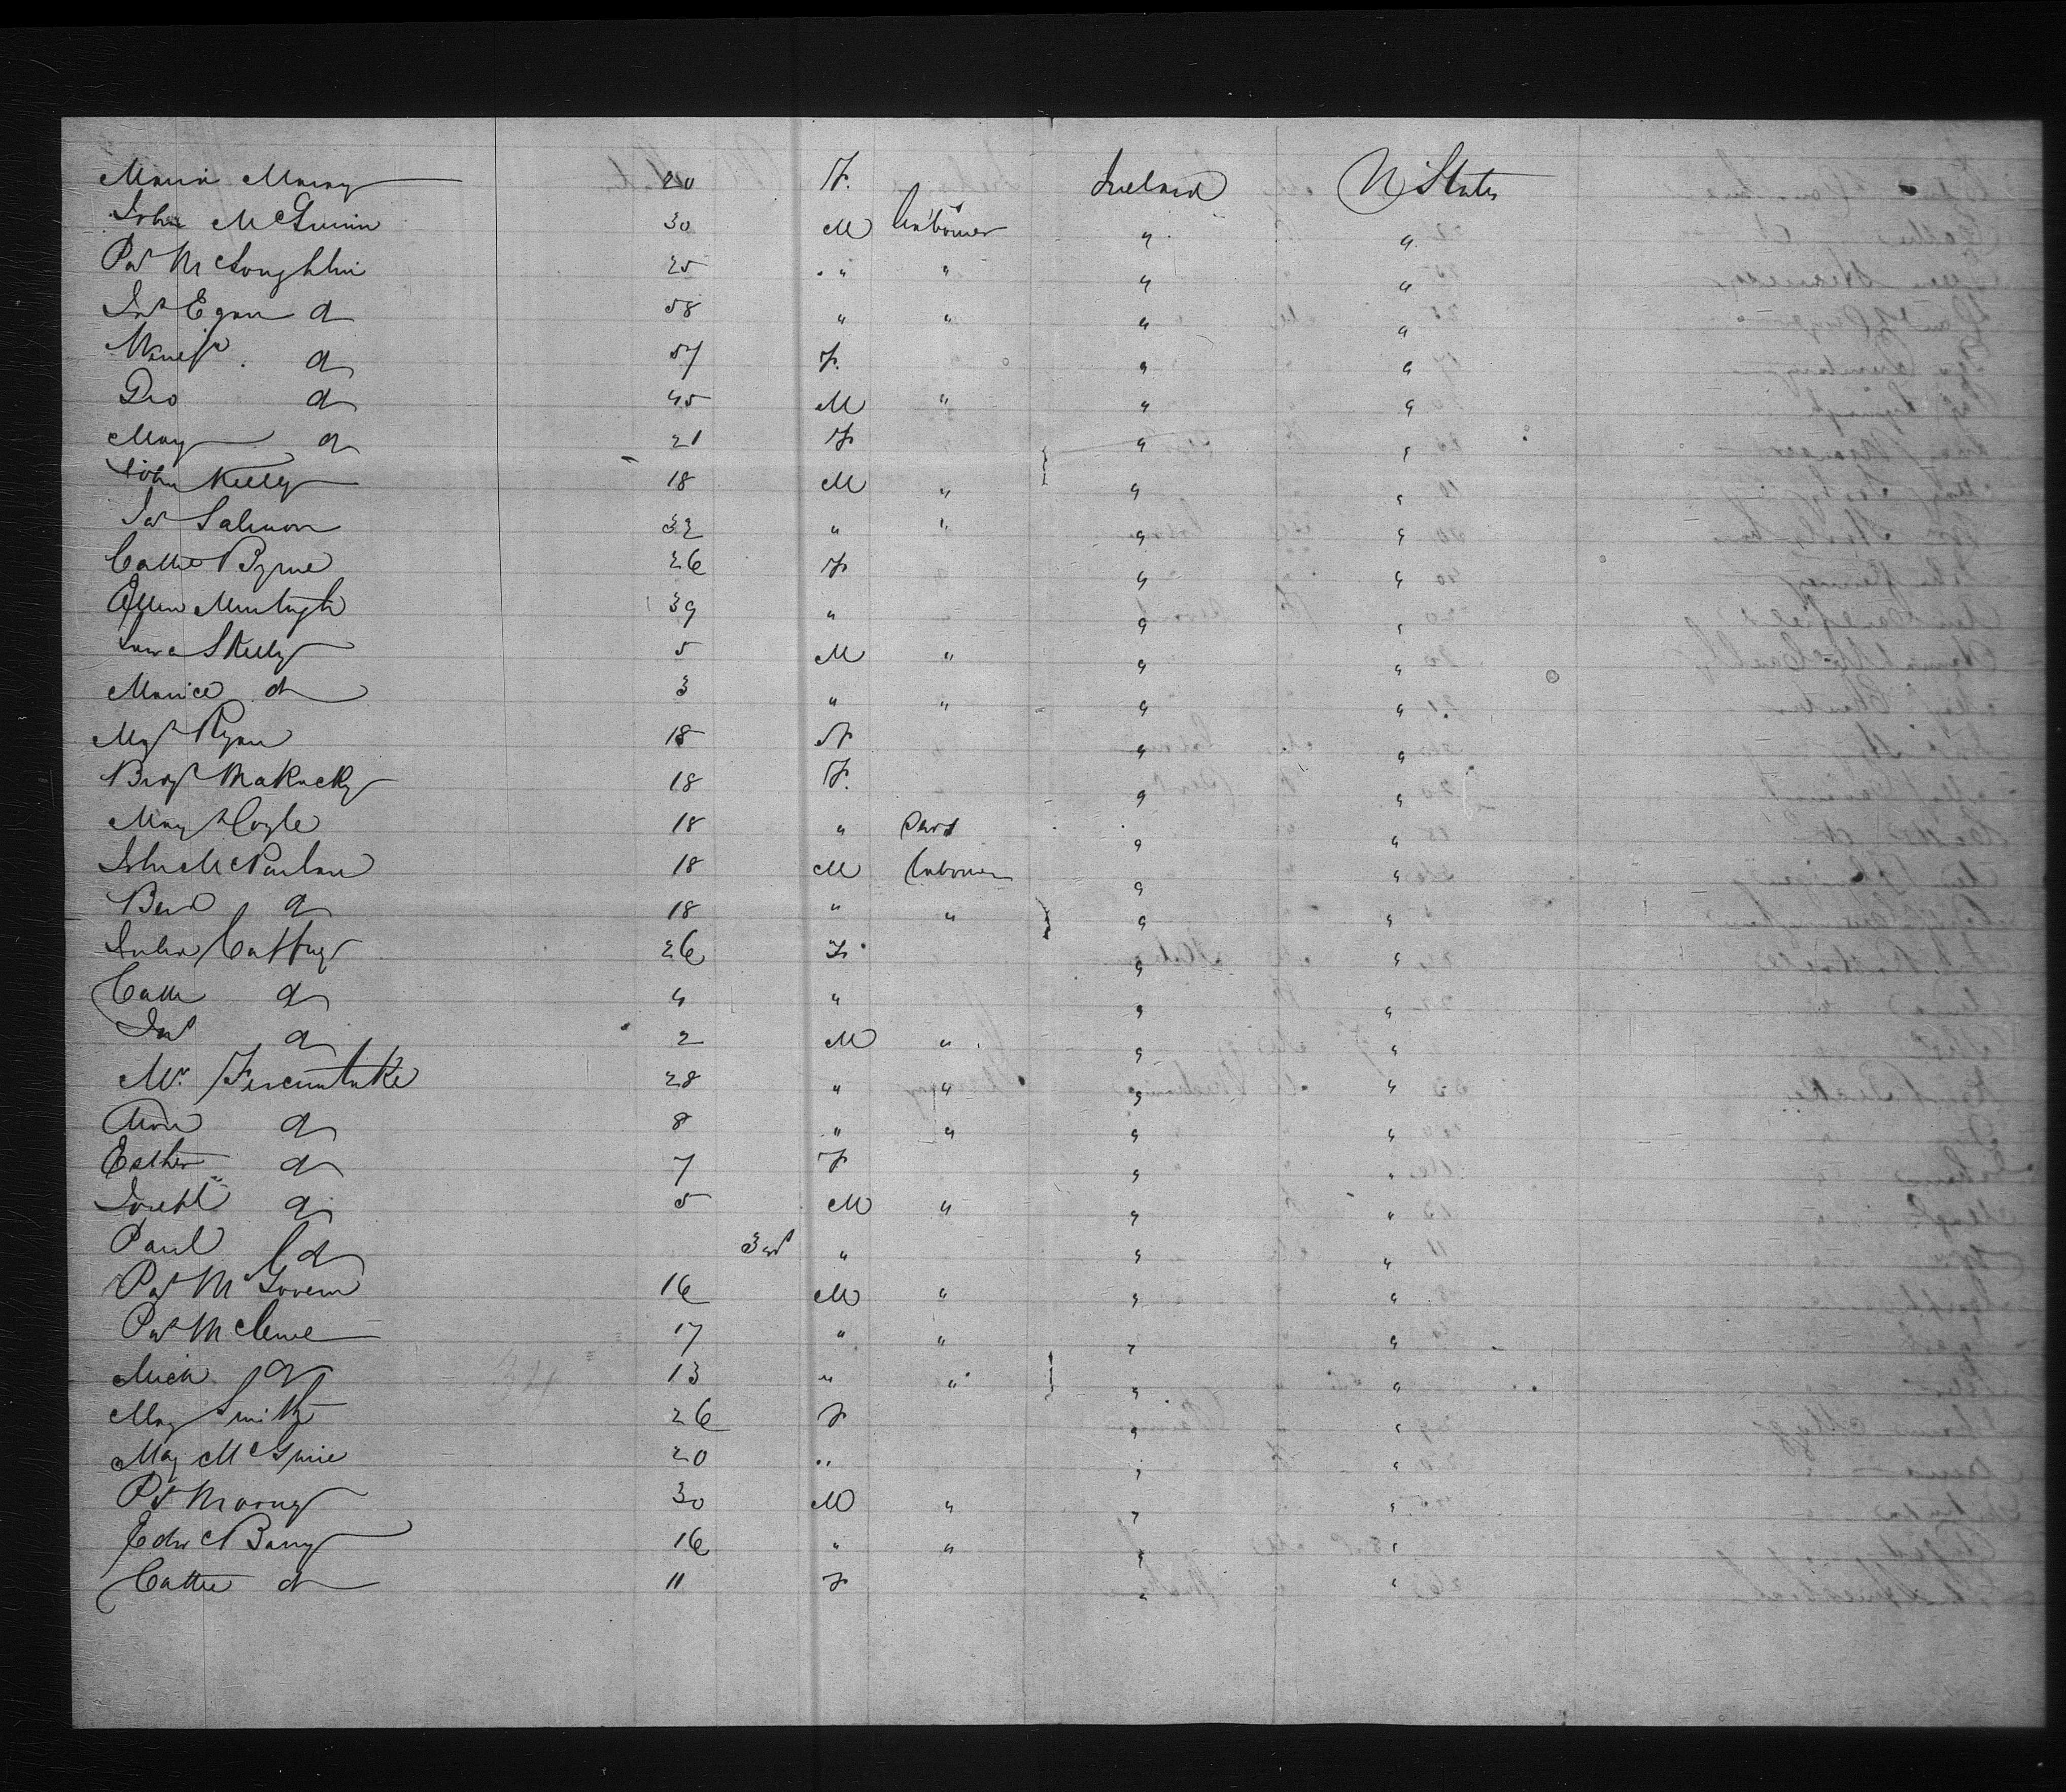 Maria Murray 20 F. Ireland U States
John McGuinn 30 M Labourer " "
Pat McLoughlin 25 " " " "
Jas Egan d 58 " " " "
d 57 F. " "
d 45 M " " "
Mary d 21 F " "
John Kelly 18 M " " "
Jas Salmon 32 " " " "
Cathe Byrne 26 F " "
Ellen Murtagh 39 " " "
Kelly 5 M " " "
Maurice d 3 " " " "
Mgt Ryan 18 F " "
Bridgt 18 F. " "
Mary Coyle 18 " Servt " "
John McParlan 18 M Labourer " "
Bernd d 18 " " " "
Julia Caffrey 26 F " "
Cathe d 4 " " "
Jas d 2 M " " "
Mr 28 " " " "
d 8 " " " "
Esther d 7 F " "
Joseph d 5 M " " "
Paul d " " "
Pat McGovern 16 M " " "
Pat 17 " " " "
Mich d 13 " " " "
Mary Smith 26 F " "
Mary McGuire 20 " " "
Pat 30 M " " "
Edwd Barry 16 " " " "
Cathe d 11 F " "